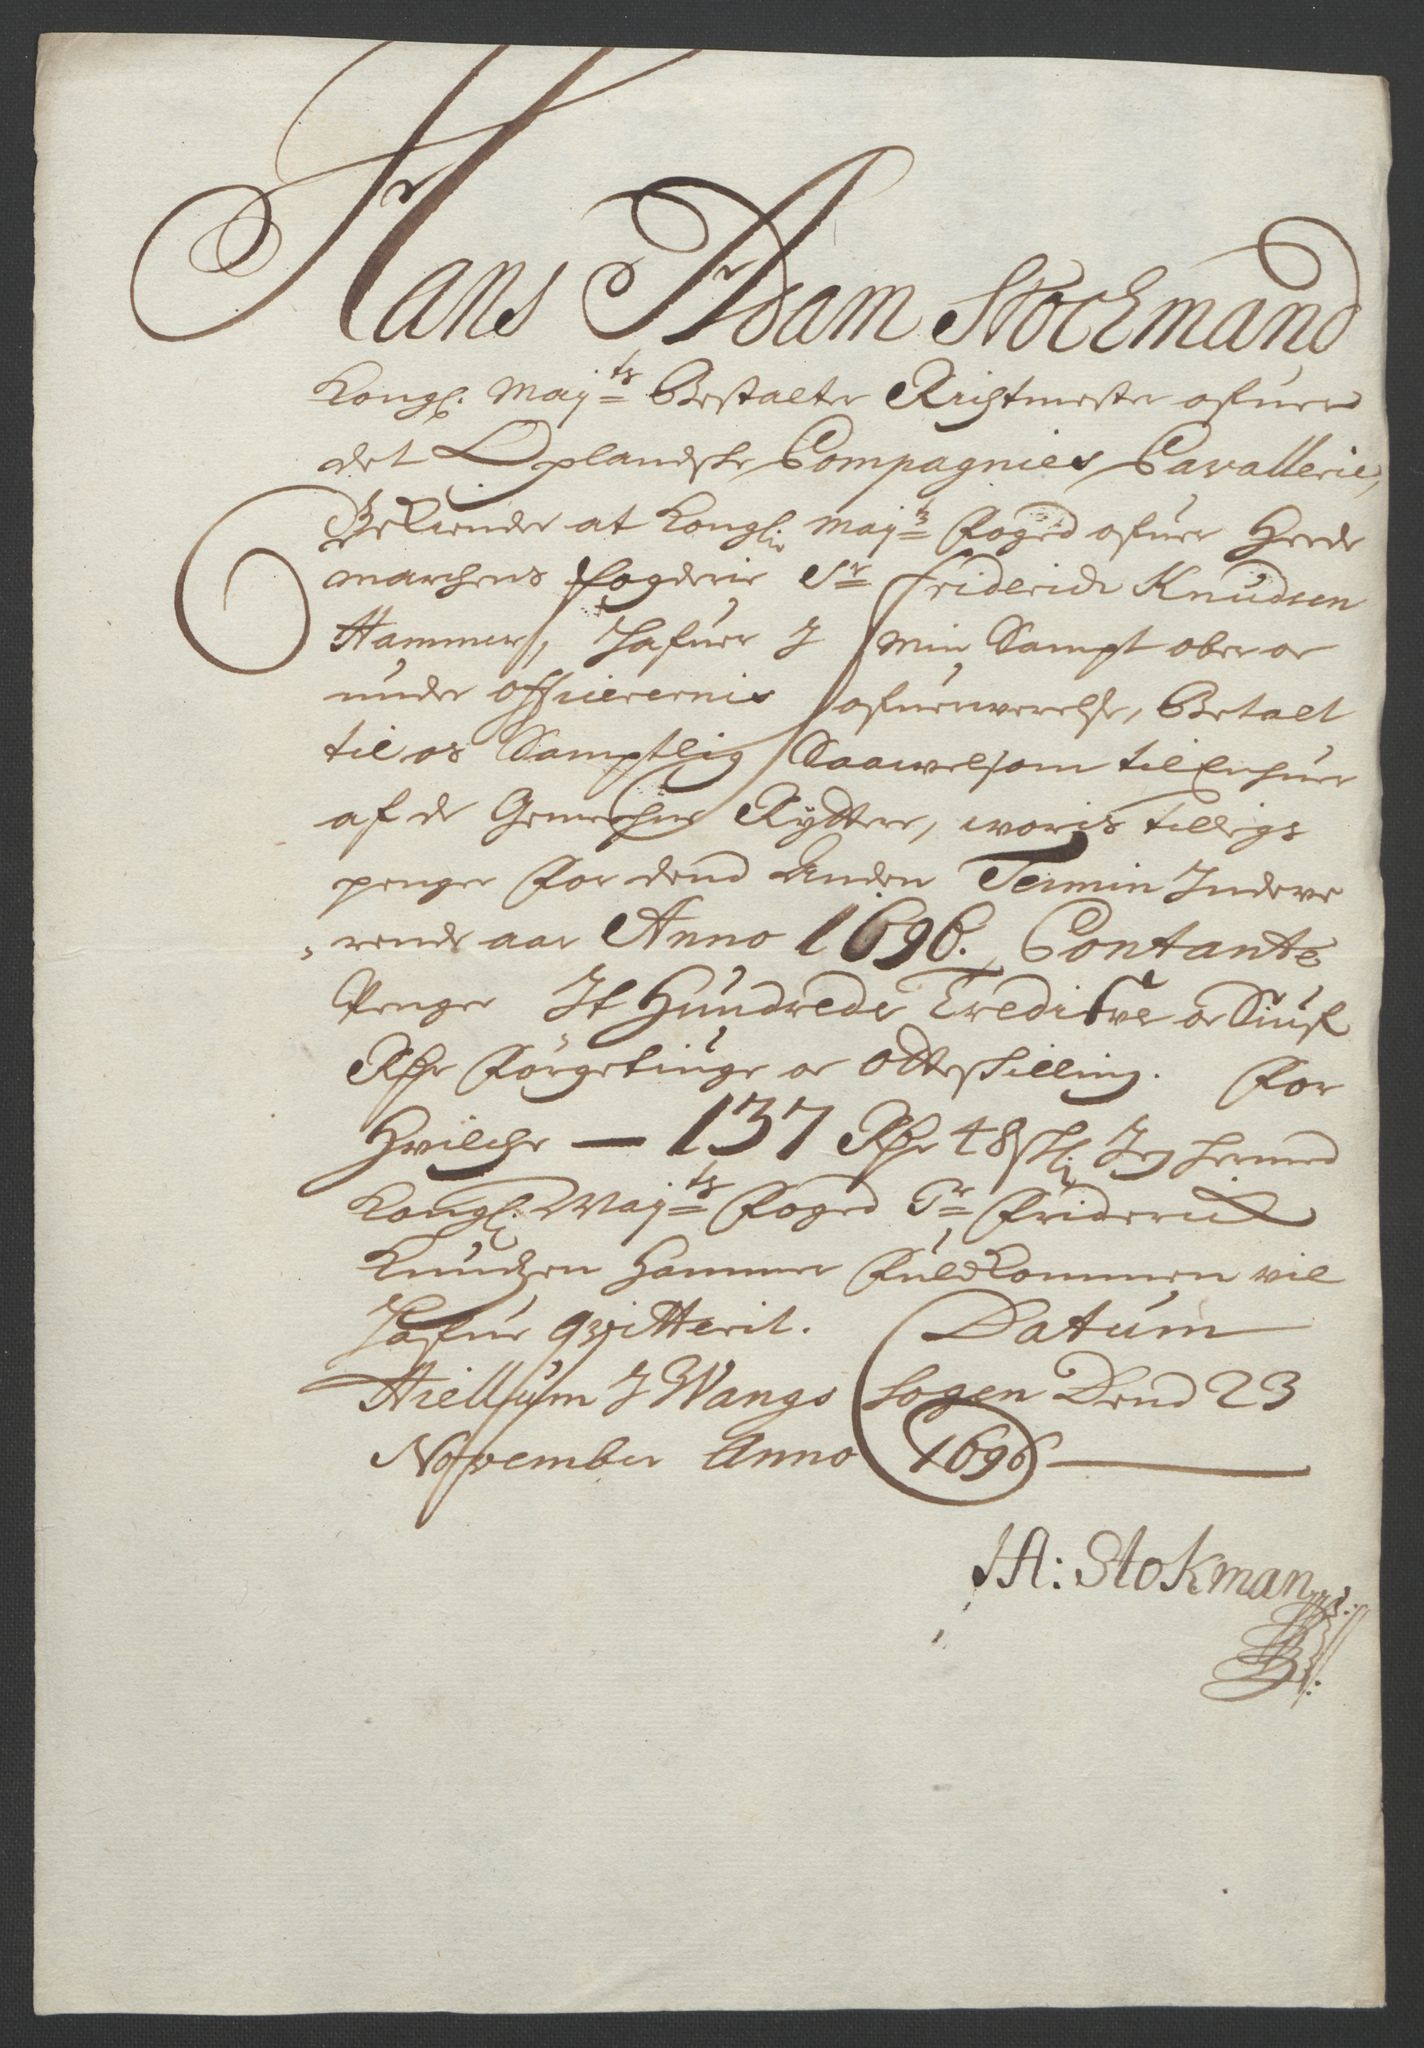 Hans Adam Stockmand
Kongl. Maÿts Bestalter Richtmester ofuer
det Oplandske Compagnies Cavallerie,
Bekiender at Kongl. Maÿts Foged ofuer Hede
marchens fogderie Sr Friderich Knudsen
Hammer, Hafuer J min Sampt ober oc
under officierernis ofuerwerelse, Betalt
til os Samptlig Saawelsom til Enhuer
af de Gemehne Rÿttere, woris tillegs
penger for dend Anden Termin Indeve
rende aar Anno 1696. Contante
Penger It Hundrede Tredifve oc Siuf
Rdr förgetiuge oc otte skilling. For
Hvilche — 137 Rdr 48 sk Jeg hermed
Kongl. Maÿts Foged Sr Friderich
Knudzen Hammer Fuldkommen vil
Hafue qvitterit. Datum
Hiellum J Wangs Sogen Dend 23
November Anno 1696
HA: Stokman